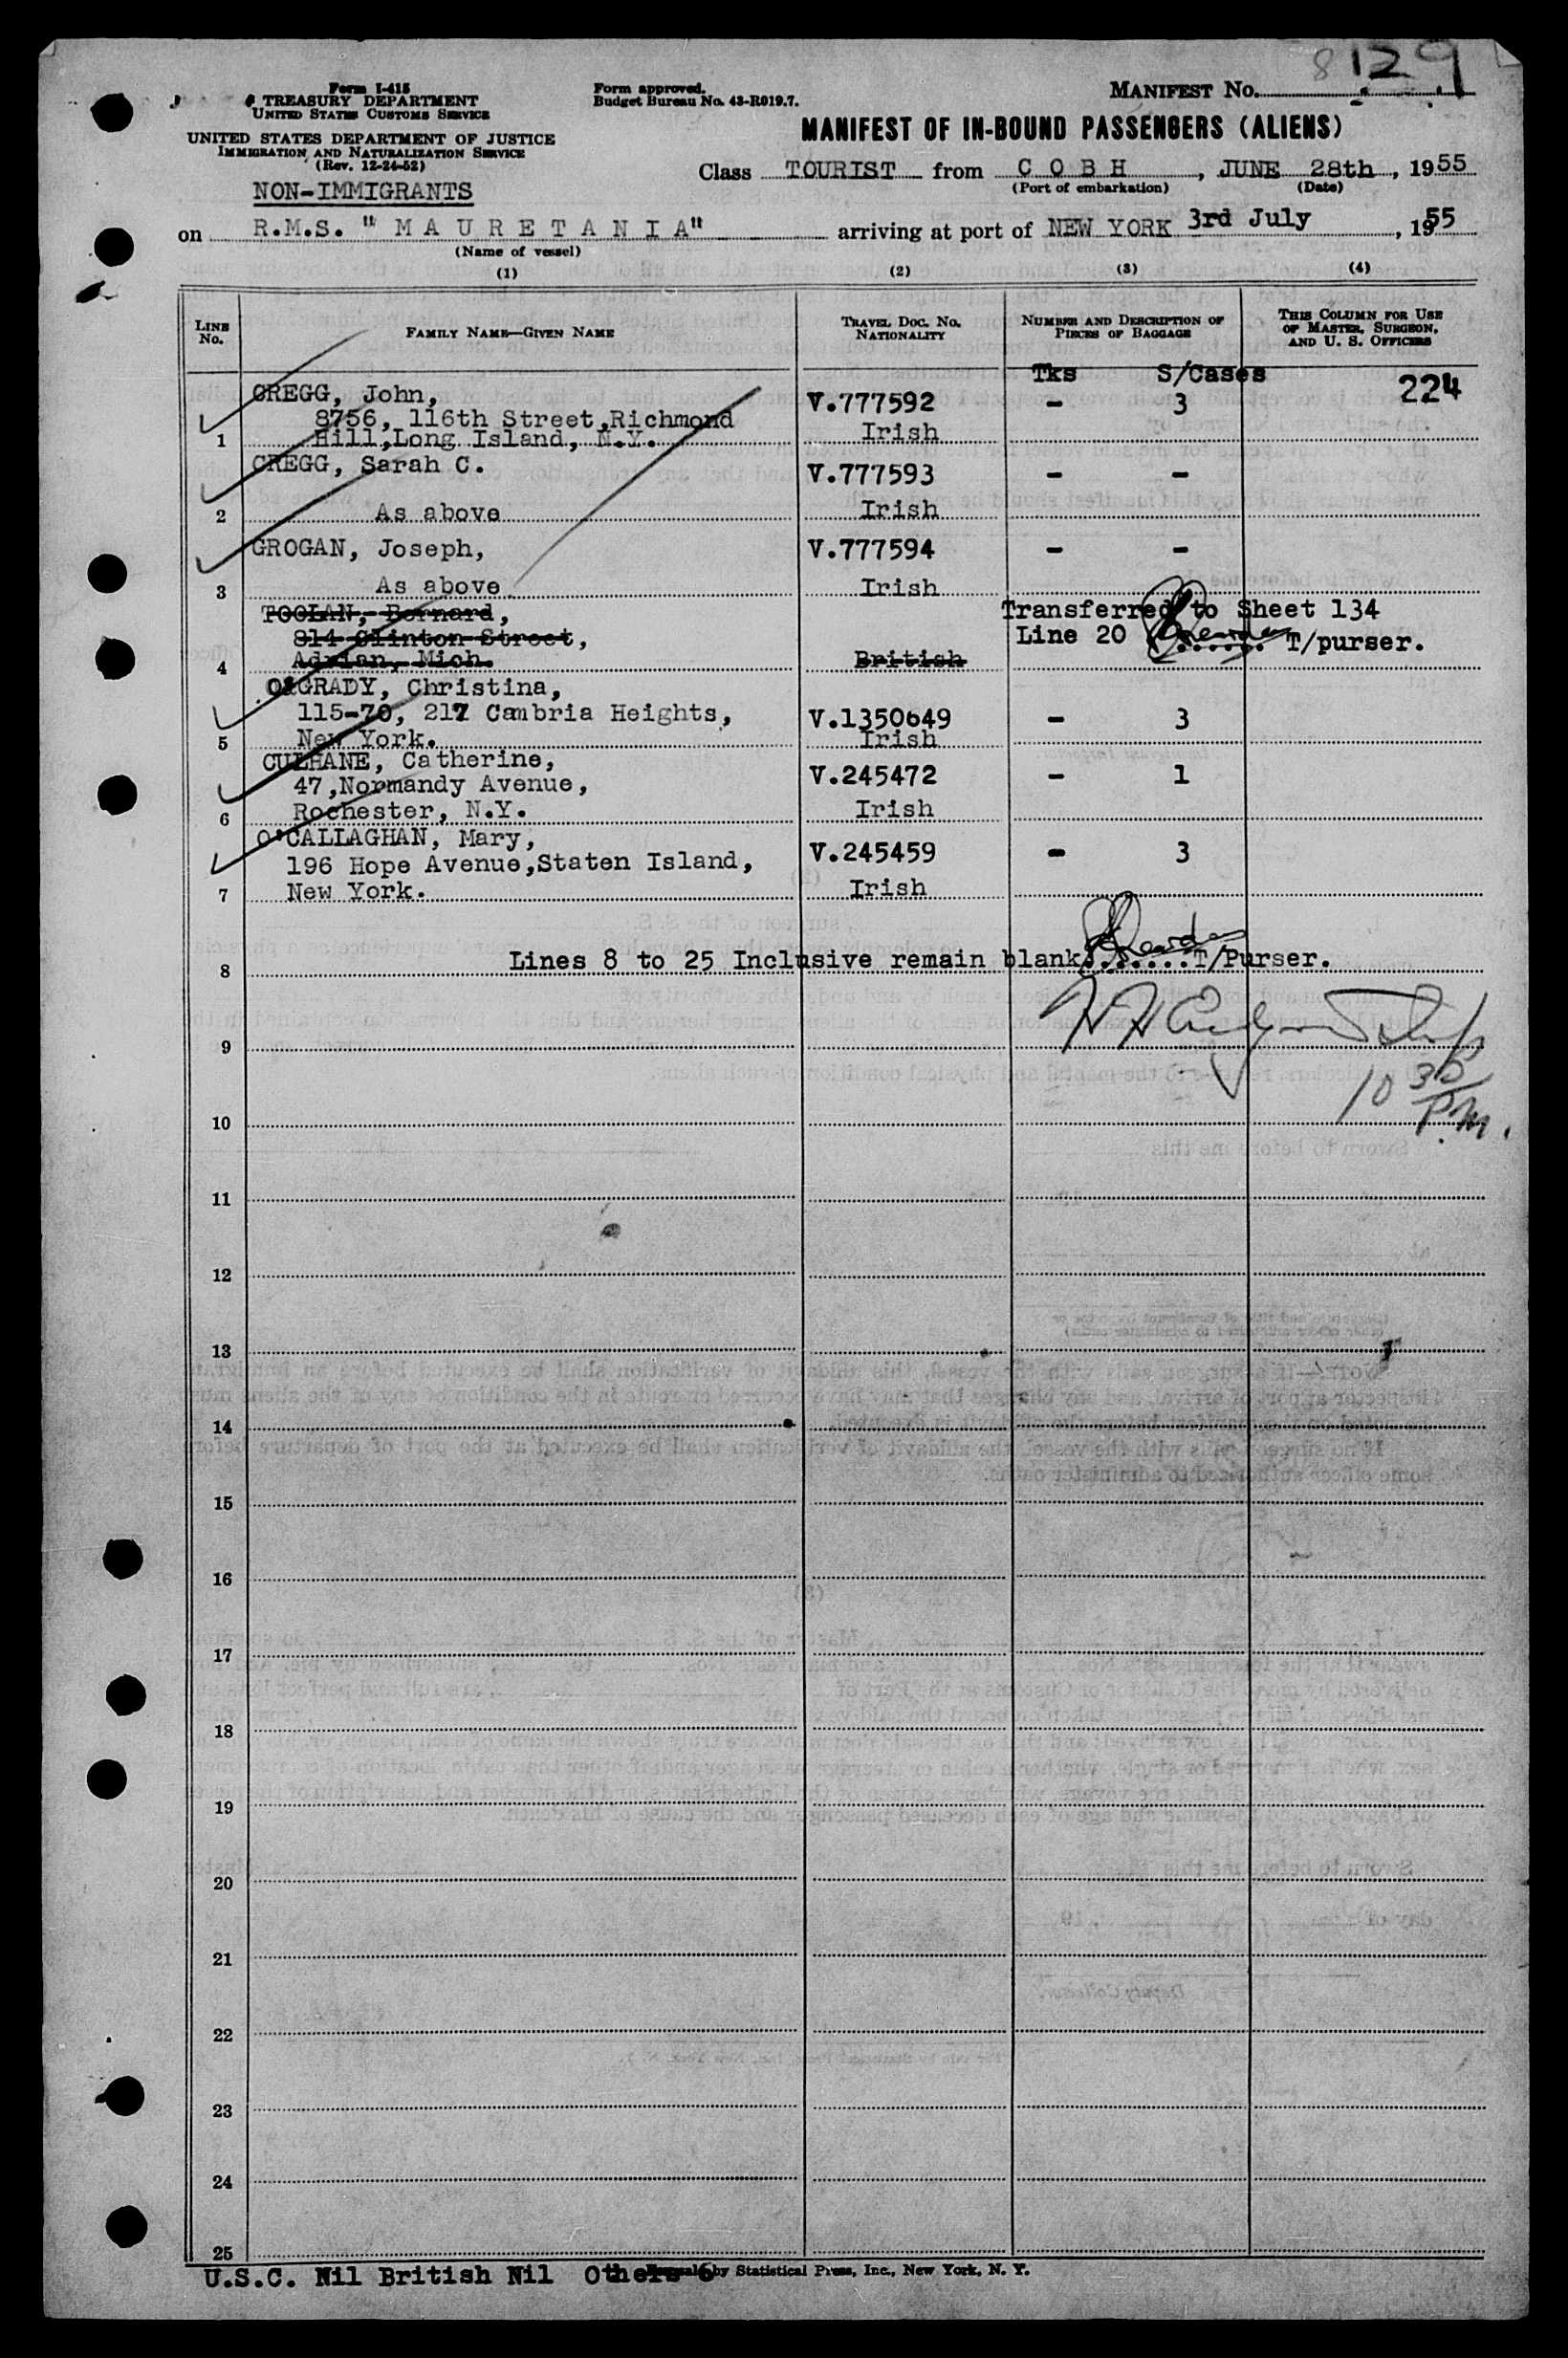 8 129
Form I-415
TREASURY DEPARTMENT
UNITED STATES CUSTOMS SERVICE
UNITED STATES DEPARTMENT OF JUSTICE
IMMIGRATION AND NATURALIZATION SERVICE
(Rev. 12-24-52)
NON-IMMIGRANTS
Form approved.
Budget Bureau No. 43-R019.7.
MANIFEST NO.
MANIFEST OF IN-BOUND PASSENGERS (ALIENS)
Class TOURIST from C O B H, JUNE 28th, 1955
(Port of embarkation) (Date)
on R.M.S. "M A U R E T A N I A" arriving at port of NEW YORK 3rd July, 1955
(Name of vessel)
(1) (2) (3) (4)
LINE NO. FAMILY NAME—GIVEN NAME TRAVEL DOC. NO. NATIONALITY NUMBER AND DESCRIPTION OF PIECES OF BAGGAGE THIS COLUMN FOR USE OF MASTER, SURGEON, AND U. S. OFFICERS
Tks S/Cases
GREGG, John, V.777592 - 3 224
8756, 116th Street,Richmond
1 Hill,Long Island, N.Y. Irish
GREGG, Sarah C. V.777593 - -
2 As above Irish
GROGAN, Joseph, V.777594 - -
3 As above Irish
TOOLAN, Bernard, Transferred to Sheet 134
814 Clinton Street, Line 20 ....... T/purser.
4 Adrian, Mich. British
O'GRADY, Christina,
115-70, 217 Cambria Heights, V.1350649 - 3
5 New York. Irish
CULHANE, Catherine, V.245472 - 1
47,Normandy Avenue,
6 Rochester, N.Y. Irish
O'CALLAGHAN, Mary, V.245459 - 3
196 Hope Avenue,Staten Island,
7 New York. Irish
8 Lines 8 to 25 Inclusive remain blank.......T/Purser.
9
10 30
P.M.
10
11
12
13
14
15
16
17
18
19
20
21
22
23
24
25
U.S.C. Nil British Nil Others 6 by Statistical Press, Inc., New York, N. Y.